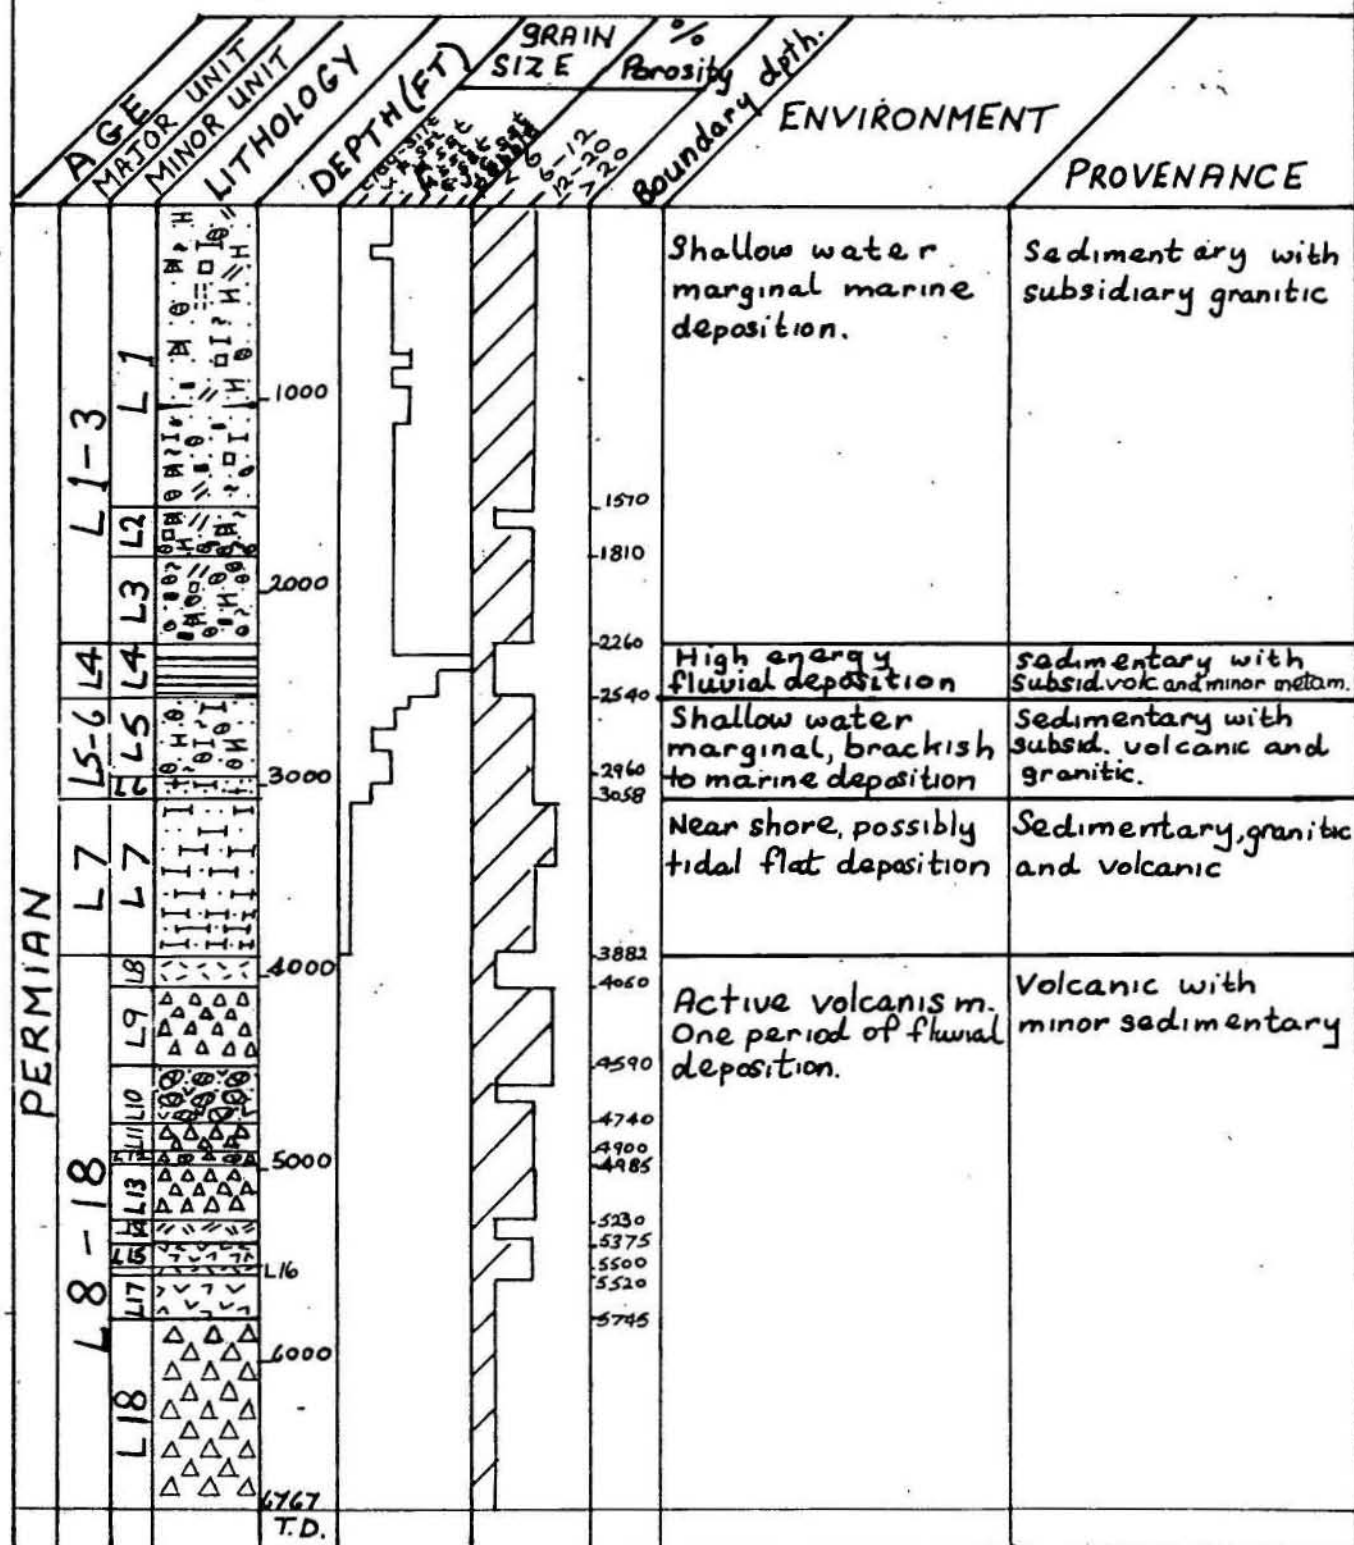 AGE
MAJOR UNIT
MINOR UNIT
LITHOLOGY
DEPTH (FT)
GRAIN
SIZE
%
Porosity
<6
6-12
12-20
>20
Boundary dpth.
ENVIRONMENT
PROVENANCE
PERMIAN
L1-3
L 1
L2
L3
L4
L4
L5-6
L5
L6
L7
L7
L8-18
L8
L9
L10
L11
L12
L13
L15
L16
L17
L18
1000
2000
3000
4000
5000
6000
6767
T.D.
1570
1810
2260
2540
2960
3058
3882
4060
4590
4740
4900
4985
5230
5375
5500
5520
5745
Shallow water
marginal marine
deposition.
Sedimentary with
subsidiary granitic
High energy
fluvial deposition
sedimentary with
subsid. volc and minor metam.
Shallow water
marginal, brackish
to marine deposition
Sedimentary with
subsid. volcanic and
granitic.
Near shore, possibly
tidal flat deposition
Sedimentary, granitic
and volcanic
Active volcanism.
One period of fluvial
deposition.
Volcanic with
minor sedimentary